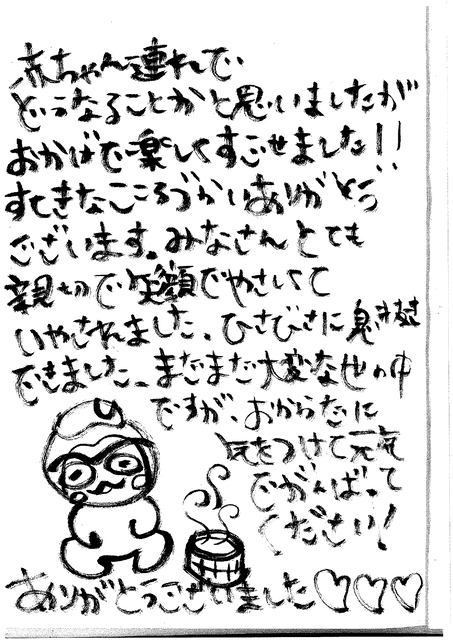 赤ちゃん連れで
どうなることかと思いましたが
おかげで楽しくすごせました!!
すてきなこころづかいありがとう
ございます。みなさんとても
親切で笑顔でやさしくて
いやされました。ひさびさに息抜き
できました。まだまだ大変な世の中
ですが、おからだに
気をつけて元気
でがんばって
ください!
ありがとうございました♡♡♡